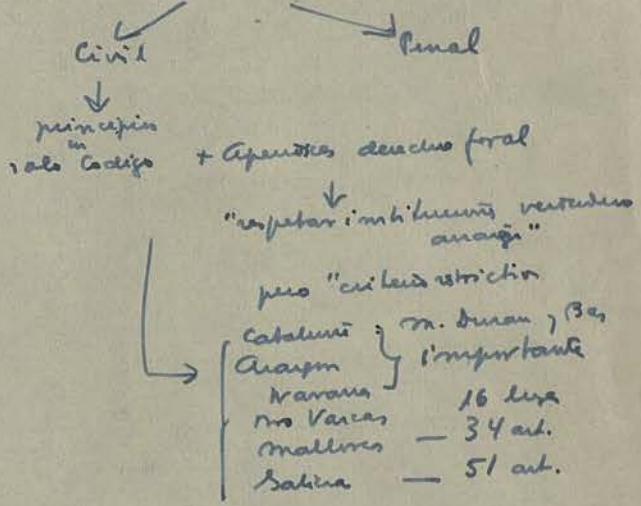 Civil Penal
principio
un
solo Código + Apendices derecho foral
"respetar instituciones verdadero
arraigo"
pero "criterio restrictivo
Cataluña : M. Duran y Bas
Aragon } importante
Navarra
Pro Vascas 16 leyes
Mallorca — 34 art.
Galicia — 51 art.